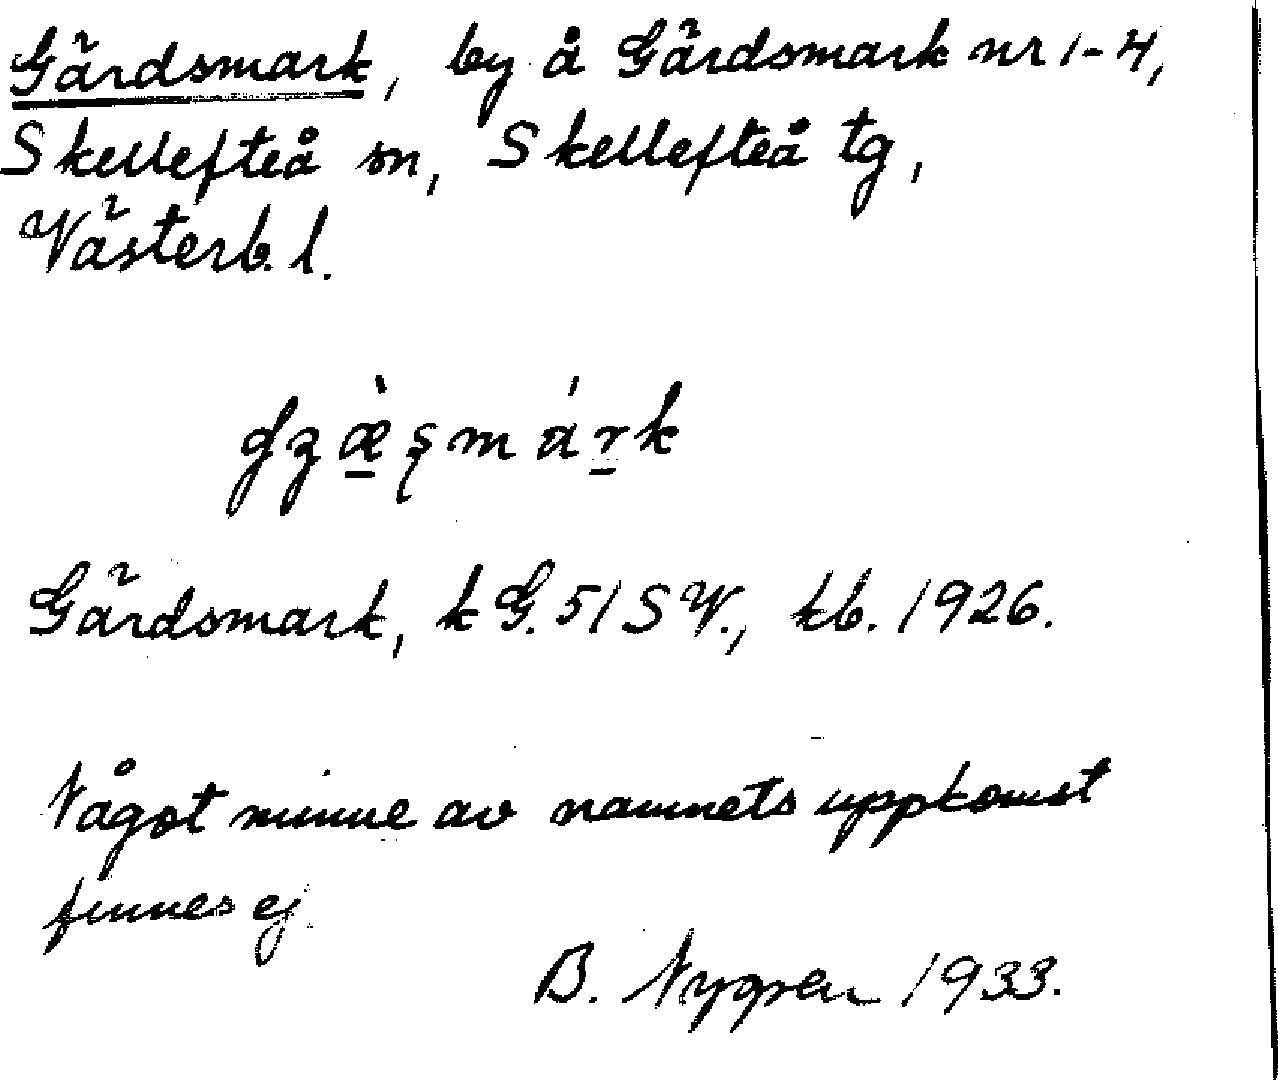 Gärdsmark, by å Gärdsmark nr 1-4,
Skellefteå sn, Skellefteå tg,
Västerb. l.
Gärdsmark, k G. 51 SV., kb. 1926.
Något minne av namnets uppkomst
finnes ej.
B. Nygren 1933.